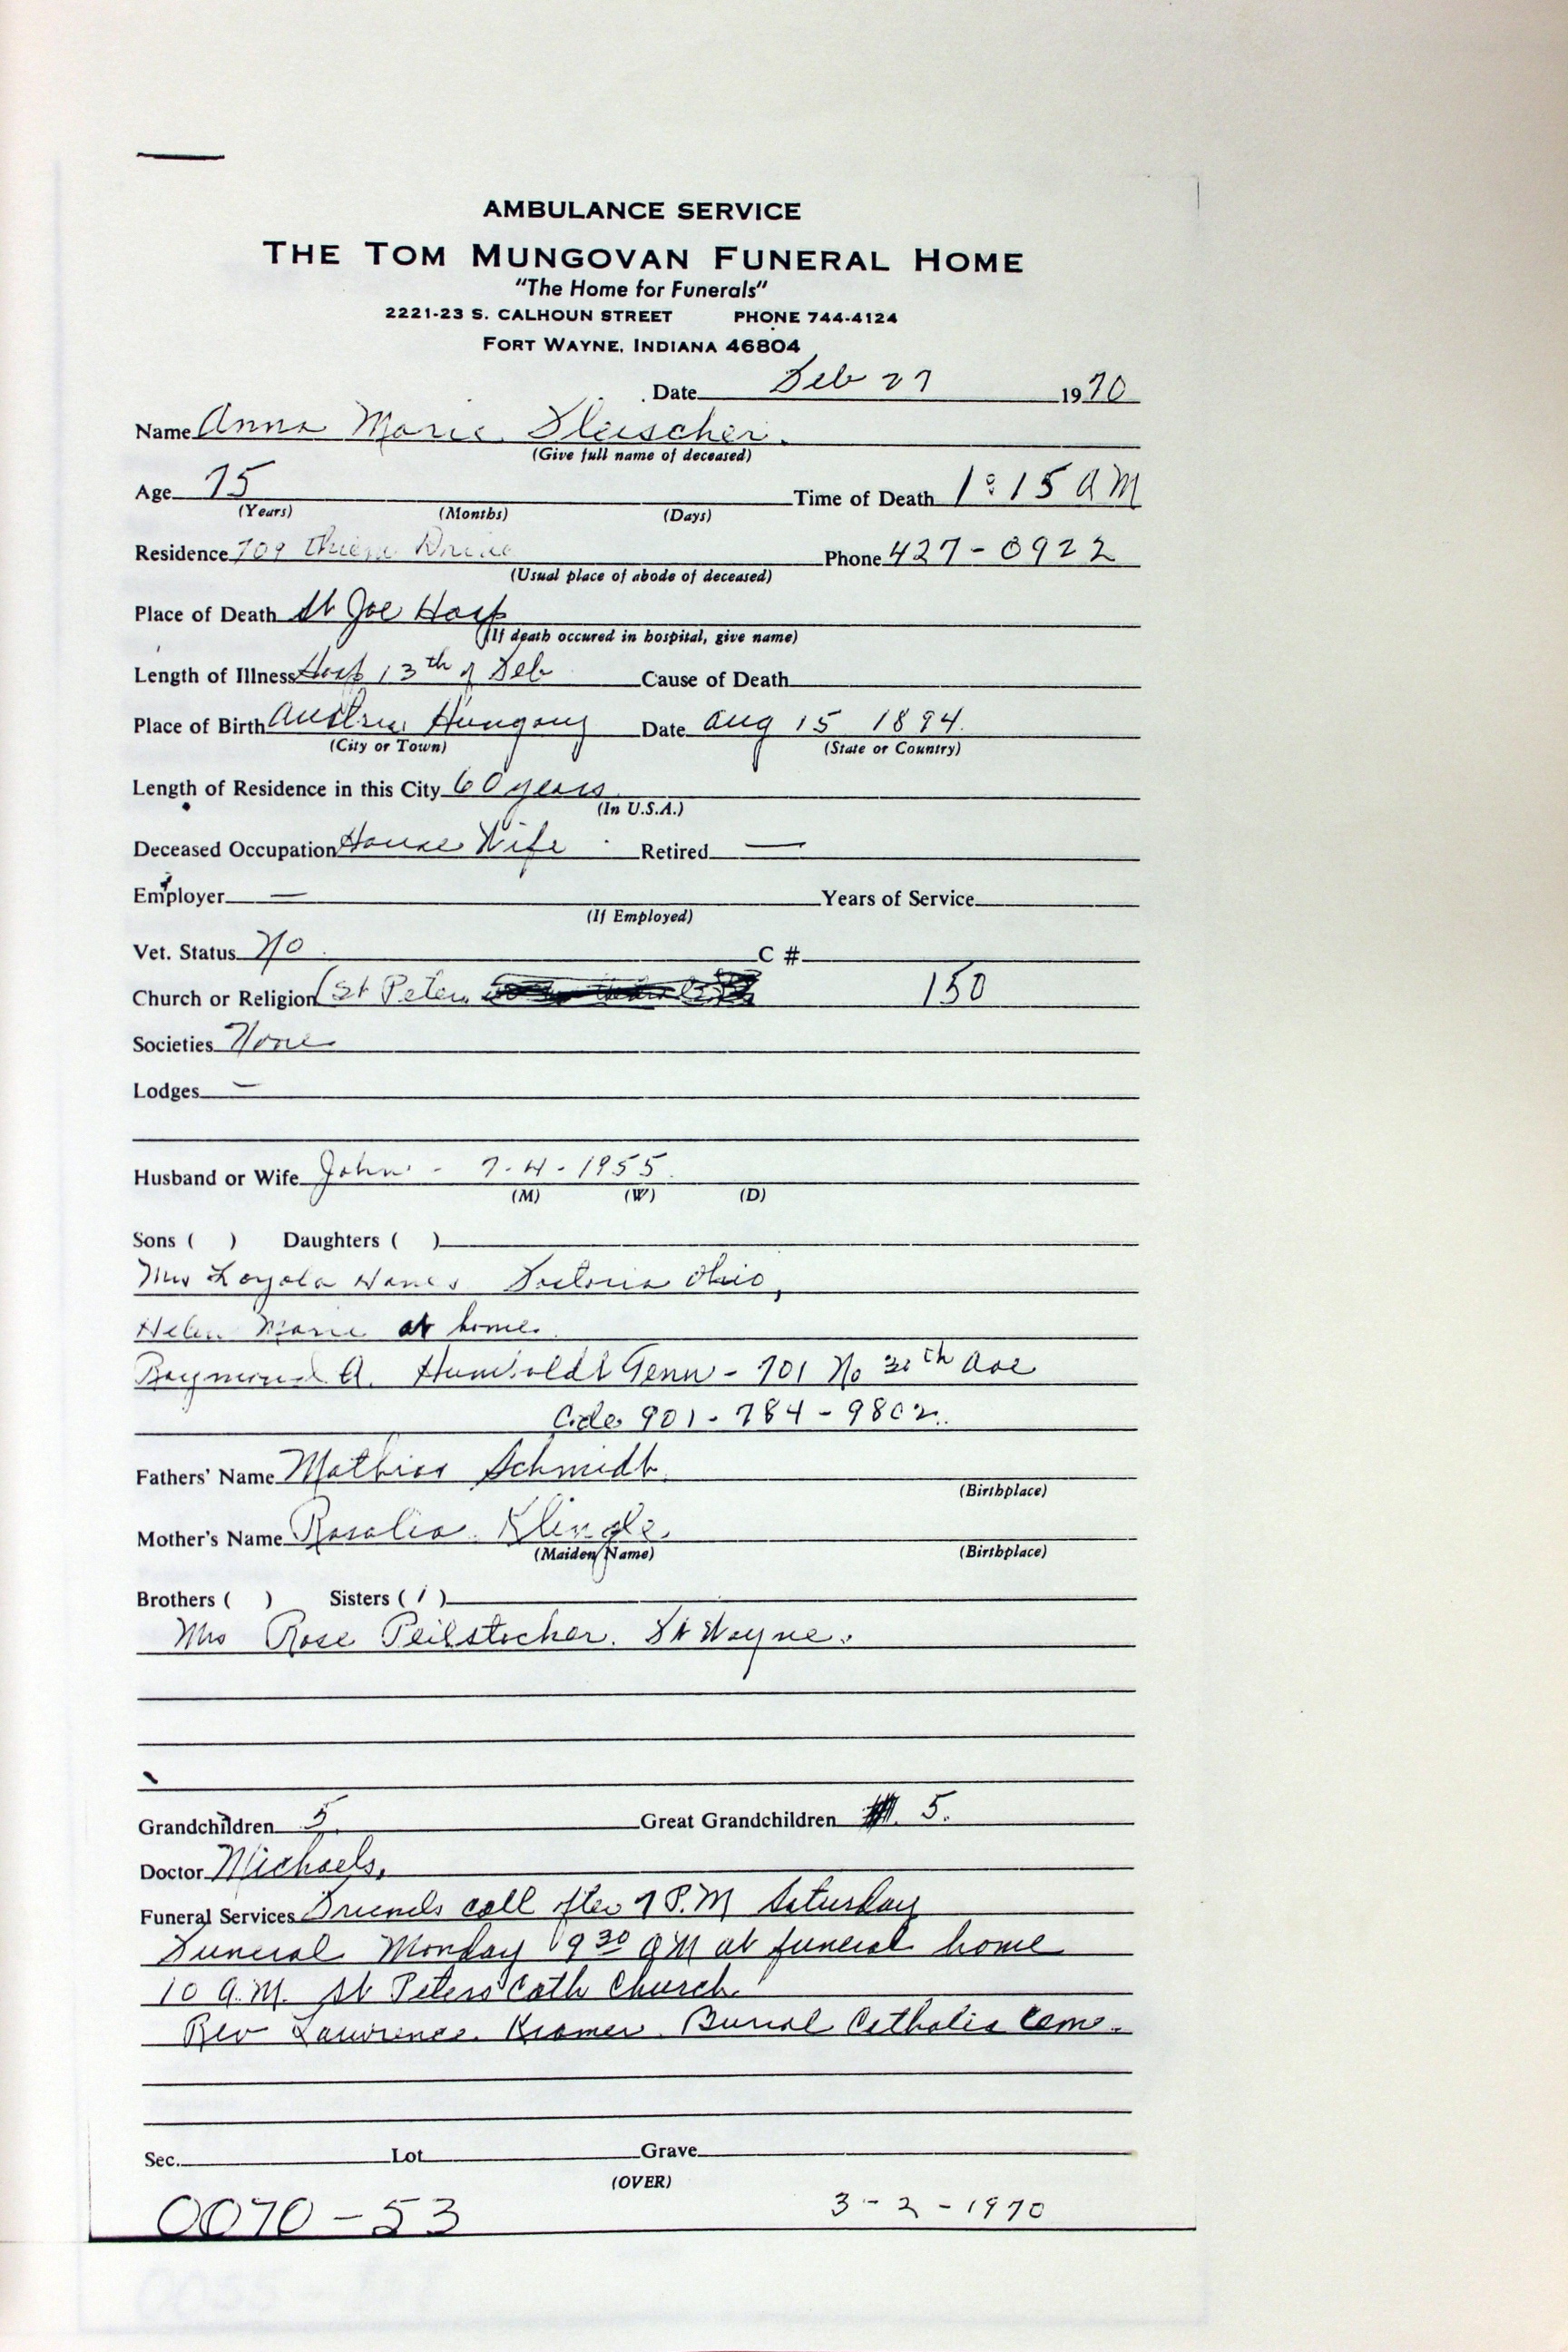 AMBULANCE SERVICE
THE TOM MUNGOVAN FUNERAL HOME
"The Home for Funerals"
2221-23 S. CALHOUN STREET PHONE 744-4124
FORT WAYNE, INDIANA 46804
Date Feb 27 1970
Name Anna Marie Fleischer.
(Give full name of deceased)
Age 75 Time of Death 1:15 AM
(Years) (Months) (Days)
Residence 709 Thieme Drive Phone 427-0922
(Usual place of abode of deceased)
Place of Death St Joe Hosp
(If death occured in hospital, give name)
Length of Illness Hosp 13th of Feb Cause of Death
Place of Birth Austria Hungary Date Aug 15 1894.
(City or Town) (State or Country)
Length of Residence in this City 60 years
(In U.S.A.)
Deceased Occupation House Wife Retired —
Employer — Years of Service
(If Employed)
Vet. Status No C #
Church or Religion (St Peters 150
Societies None
Lodges —
Husband or Wife John - 7-4-1955.
(M) (W) (D)
Sons ( ) Daughters ( )
Mrs Loyola Fostoria Ohio,
Helen Marie at home.
Raymond A. Humboldt Tenn - 701 No 30th Ave
Code 901-784-9802.
Fathers' Name Mathias Schmidt
(Birthplace)
Mother's Name Rosalia Klingle.
(Maiden Name) (Birthplace)
Brothers ( ) Sisters ( 1 )
Mrs Rose Peilstocker. Ft Wayne.
Grandchildren 5. Great Grandchildren 5.
Doctor Michaels,
Funeral Services Friends call after 7 P.M Saturday
Funeral Monday 9 30 AM at funeral home
10 A.M. St Peters Cath Church.
Rev Lawrence Kramer. Burial Catholic Ceme.
Sec. Lot Grave
(OVER)
0070-53 3-2-1970